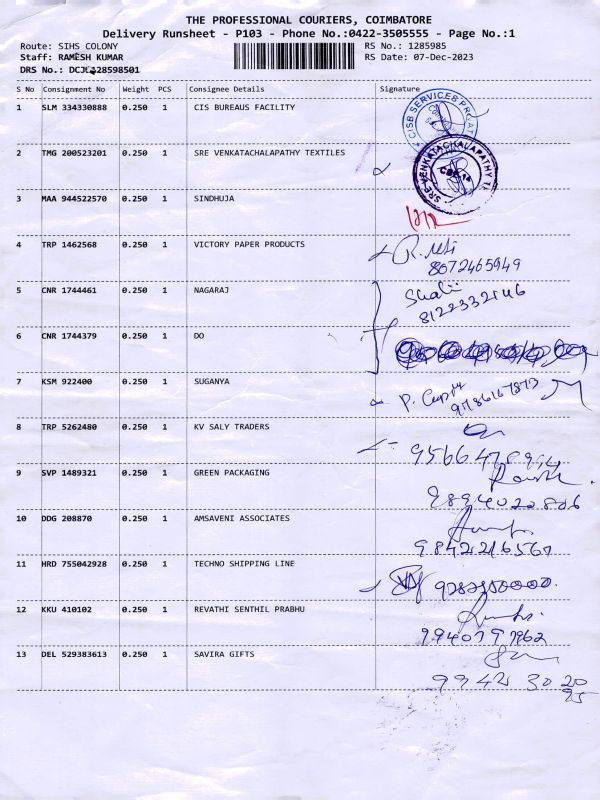 THE PROFESSIONAL COURIERS, COIMBATORE
Delivery Runsheet - P103 - Phone No.:0422-3505555 - Page No.:1
Route: SIHS COLONY
RS No.: 1285985
Staff: RAMESH KUMAR
RS Date: 07-Dec-2023
DRS No.: 28598501
S No Consignment No Weight PCS Consignee Details Signature
1 SLM 334330888 0.250 1 CIS BUREAUS FACILITY
CISB SERVICES
2 TMG 200523201 0.250 1 SRE VENKATACHALAPATHY TEXTILES
SRE VENKATACHALAPATHY
3 MAA 944522570 0.250 1 SINDHUJA
4 TRP 1462568 0.250 1 VICTORY PAPER PRODUCTS
8072465949
5 CNR 1744461 0.250 1 NAGARAJ
8122332146
6 CNR 1744379 0.250 1 DO
7 KSM 922400 0.250 1 SUGANYA
8 TRP 5262480 0.250 1 KV SALY TRADERS
9 SVP 1489321 0.250 1 GREEN PACKAGING
9894022806
10 DDG 208870 0.250 1 AMSAVENI ASSOCIATES
9842216560
11 HRD 755042928 0.250 1 TECHNO SHIPPING LINE
12 KKU 410102 0.250 1 REVATHI SENTHIL PRABHU
13 DEL 529383613 0.250 1 SAVIRA GIFTS
9942 30 20
95